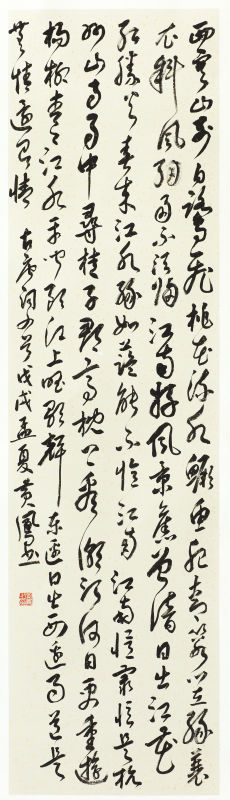 西塞山前白鷺飛桃花流水鱖魚肥青箬笠綠蓑
衣斜風細雨不須歸江南好風景舊曾諳日出江花
紅勝火春來江水綠如藍能不憶江南江南憶最憶是杭
州山寺月中尋桂子郡亭枕上看潮頭何日更重遊
楊柳青青江水平聞郎江上唱歌聲東邊日出西邊雨道是
無情還有情 右唐詞四首戊戌孟夏黄鳳書